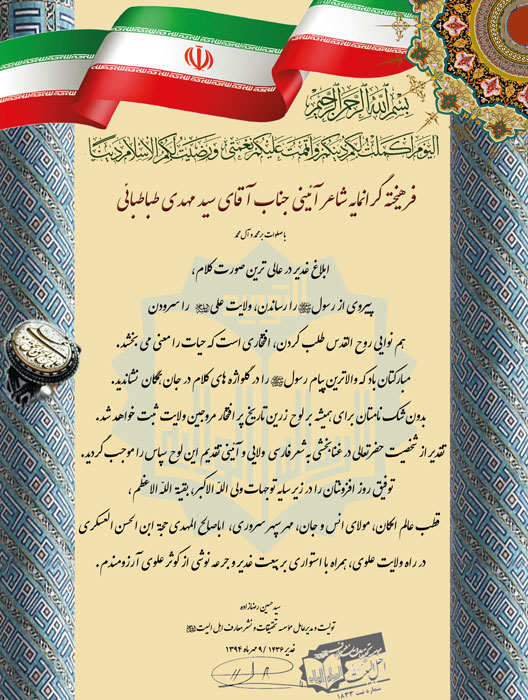 بسم الله الرحمن الرحیم
الیوم اکملت لکم دینکم و اتممت علیکم نعمتی و رضیت لکم الاسلام دینا
فرهیخته گرانمایه شاعر آئینی جناب آقای سید مهدی طباطبائی
با صلوات بر محمد و آل محمد
ابلاغ غدیر در عالی ترین صورت کلام،
پیروی از رسول ﷺ را رساندن، ولایت علی را سرودن
هم نوایی روح القدس طلب کردن، افتخاری است که حیات را معنی می بخشد.
مبارکتان باد که والاترین پیام رسول ﷺ را در گلواژه های کلام در جان همگان نشاندید.
بدون شک نامتان برای همیشه بر لوح زرین تاریخ پر افتخار مروجین ولایت ثبت خواهد شد.
تقدیر از شخصیت حضرتعالی در غنابخشی به شعر فارسی ولایی و آئینی تقدیم این لوح سپاس را موجب گردید.
توفیق روز افزونتان را در زیر سایه توجهات ولی الله الاکبر، بقیة الله الاعظم،
قطب عالم امکان، مولای انس و جان، مهر سپهر سروری، اباصالح المهدی حجة ابن الحسن العسکری
در راه ولایت علوی، همراه با استواری بر بیعت غدیر و جرعه نوشی از کوثر علوی آرزومندم.
سید حسین رضازاده
تولیت و مدیرعامل مؤسسه تحقیقات و نشر معارف اهل البیت
غدیر ۱۴۳۶ / ۹ مهرماه ۱۳۹۴
اهل البیت
شماره ثبت ۱۸۳۳